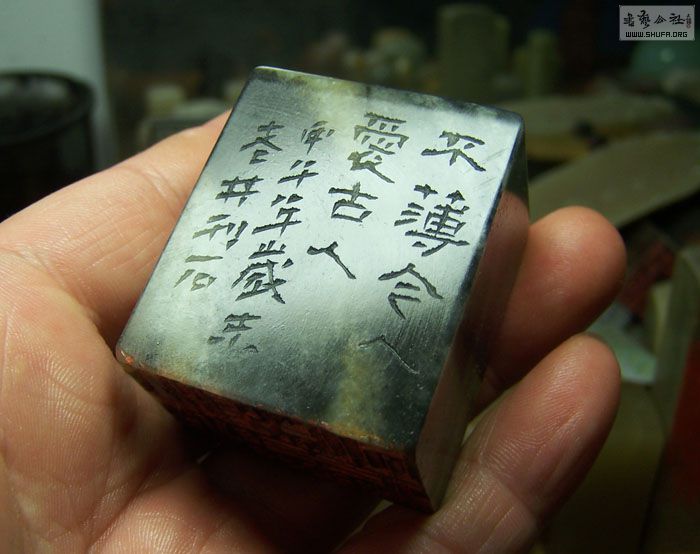 不薄今人
愛古人
甲午年歲末
井刊石
书艺公社
WWW.SHUFA.ORG